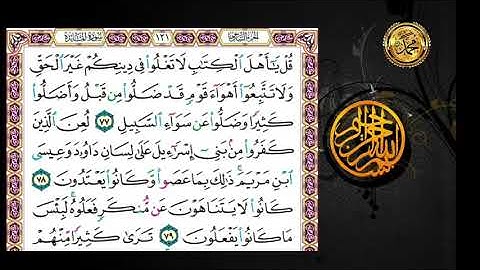 الجزء السادس ١٢١ سورة المائدة
قُلْ يَٰٓأَهْلَ ٱلْكِتَٰبِ لَا تَغْلُوا۟ فِى دِينِكُمْ غَيْرَ ٱلْحَقِّ
وَلَا تَتَّبِعُوٓا۟ أَهْوَآءَ قَوْمٍ قَدْ ضَلُّوا۟ مِن قَبْلُ وَأَضَلُّوا۟
كَثِيرًا وَضَلُّوا۟ عَن سَوَآءِ ٱلسَّبِيلِ ٧٧ لُعِنَ ٱلَّذِينَ
كَفَرُوا۟ مِنۢ بَنِىٓ إِسْرَٰٓءِيلَ عَلَىٰ لِسَانِ دَاوُۥدَ وَعِيسَى
ٱبْنِ مَرْيَمَ ۚ ذَٰلِكَ بِمَا عَصَوا۟ وَّكَانُوا۟ يَعْتَدُونَ ٧٨
كَانُوا۟ لَا يَتَنَاهَوْنَ عَن مُّنكَرٍ فَعَلُوهُ ۚ لَبِئْسَ
مَا كَانُوا۟ يَفْعَلُونَ ٧٩ تَرَىٰ كَثِيرًا مِّنْهُمْ
محمد
بسم الله الرحمن الرحيم